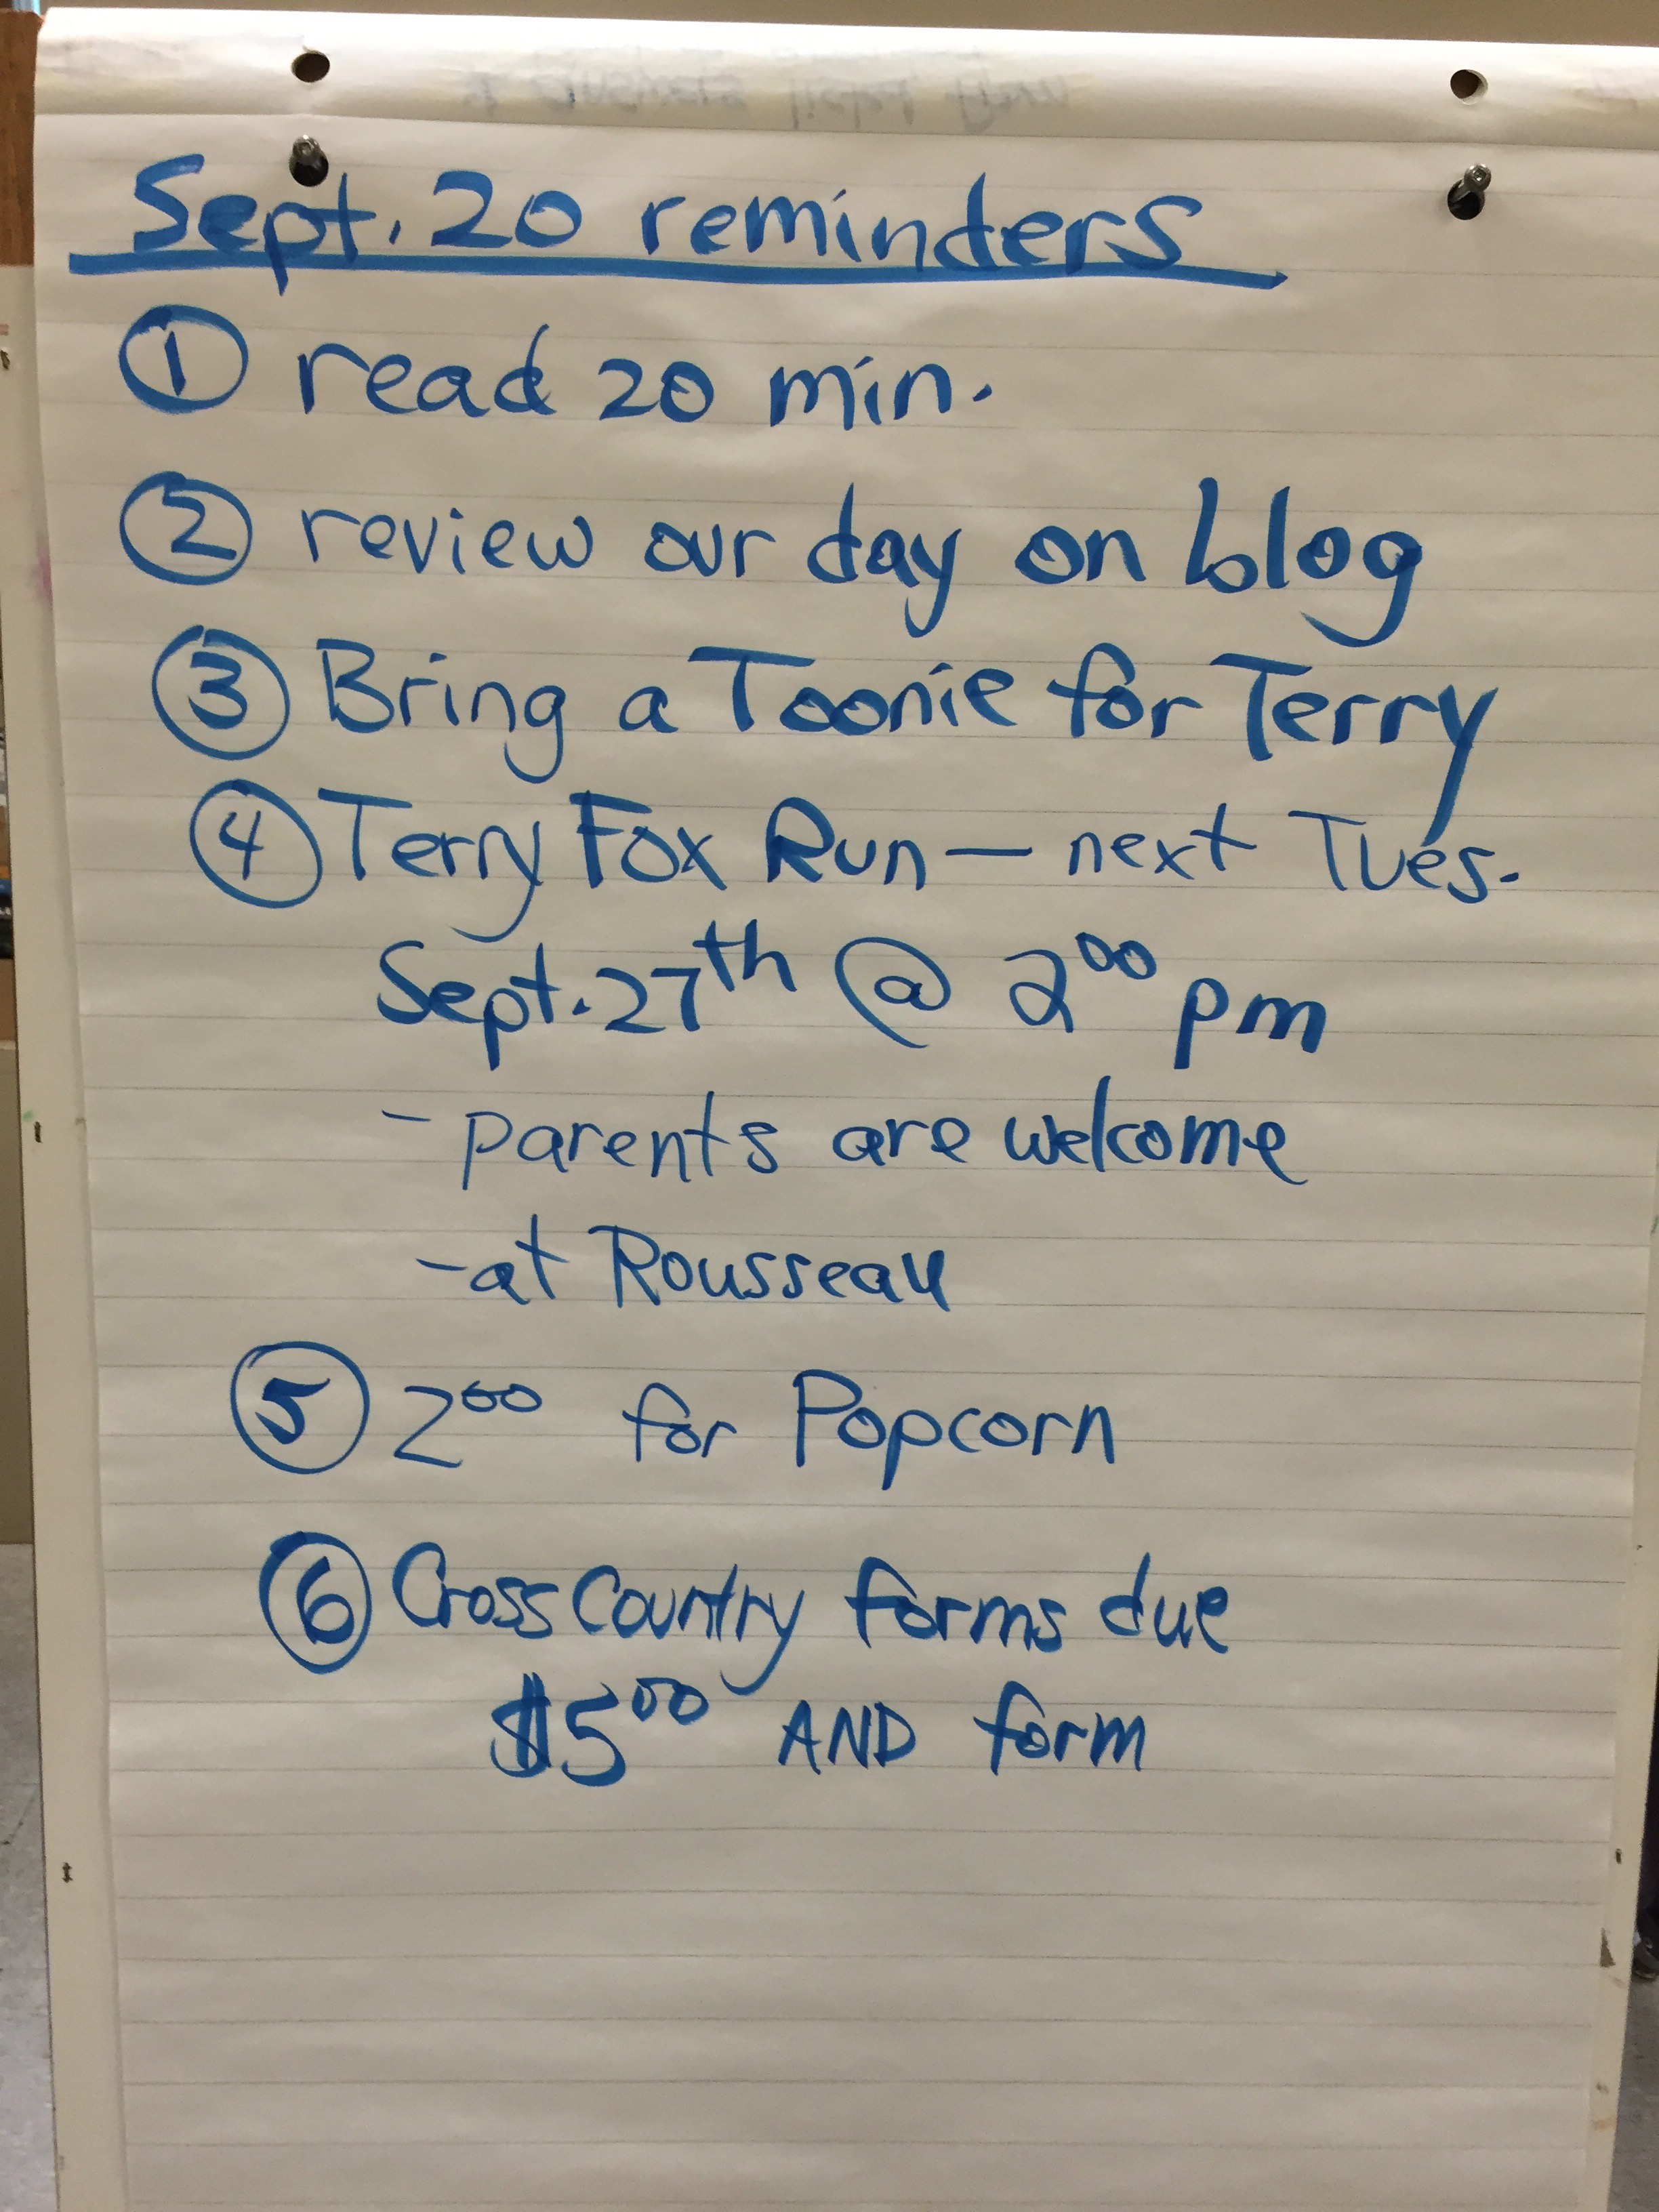 Sept. 20 reminders
① read 20 min.
② review our day on blog
③ Bring a Toonie for Terry
④ Terry Fox Run — next Tues.
Sept. 27th @ 2⁰⁰ pm
- parents are welcome
- at Rousseau
⑤ 2⁰⁰ for Popcorn
⑥ Cross Country forms due
$5⁰⁰ AND form